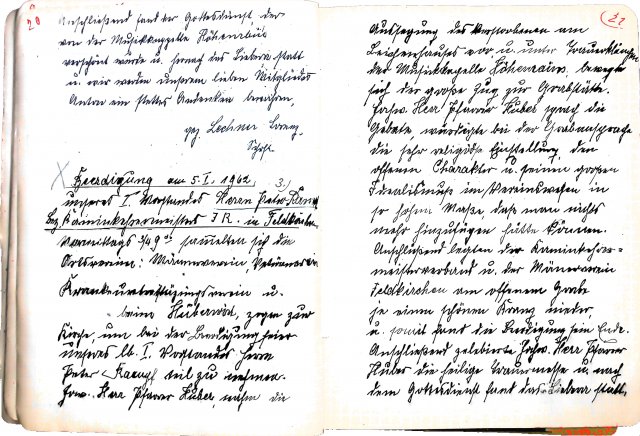 20
Anschließend fand der Gottesdienst, der
von der Musikkapelle Höhenrain
verschönt wurde u. hernach das Libera statt
u. wir werden unserem lieben Mitglied
Anton ein stettes Andenken bewahren,
gez. Lechner Lorenz
Schrf.
Beerdigung am 5. I. 1962,
unseres I. Vorstandes Herrn Peter
Bez. Kaminkehrermeisters I R. in Feldkirchen
Vormittags 3/4 9 h sammelten sich die
Ortsverein: Männerverein, Veteranen
Krankenunterstüzungsverein u.
beim Hüberwirt, zogen zur
Kirche, um bei der Beerdigung feier
unseres lb. I. Vorstandes Herrn
Peter teil zu nehmen.
Hochw. Herr Pfarrer Huber, nahm die
21
Aussegnung des Verstorbenen am
Leichenhauses vor u. unter Trauerklängen
der Musikkapelle Höhenrain, bewegte
sich der große Zug zur Grabstätte.
Hochw. Herr Pfarrer Huber sprach die
Gebete, würdigte bei der Grabansprache
die sehr religiöse Einstellung den
offenen Charakter u. seinen großen
Idealismus im Vereinswesen in
so hohen Maße, daß man nichts
mehr hinzufügen hätte können.
Anschließend legten der Kaminkehrer-
meisterverband u. der Männerverein
Feldkirchen am offenen Grabe
je einen schönen Kranz nieder,
u. somit fand die Beerdigung sein Ende.
Anschließend zelebrierte Hochw. Herr Pfarrer
Huber die heilige Trauermesse u. nach
dem Gottesdienst fand das Libera statt.